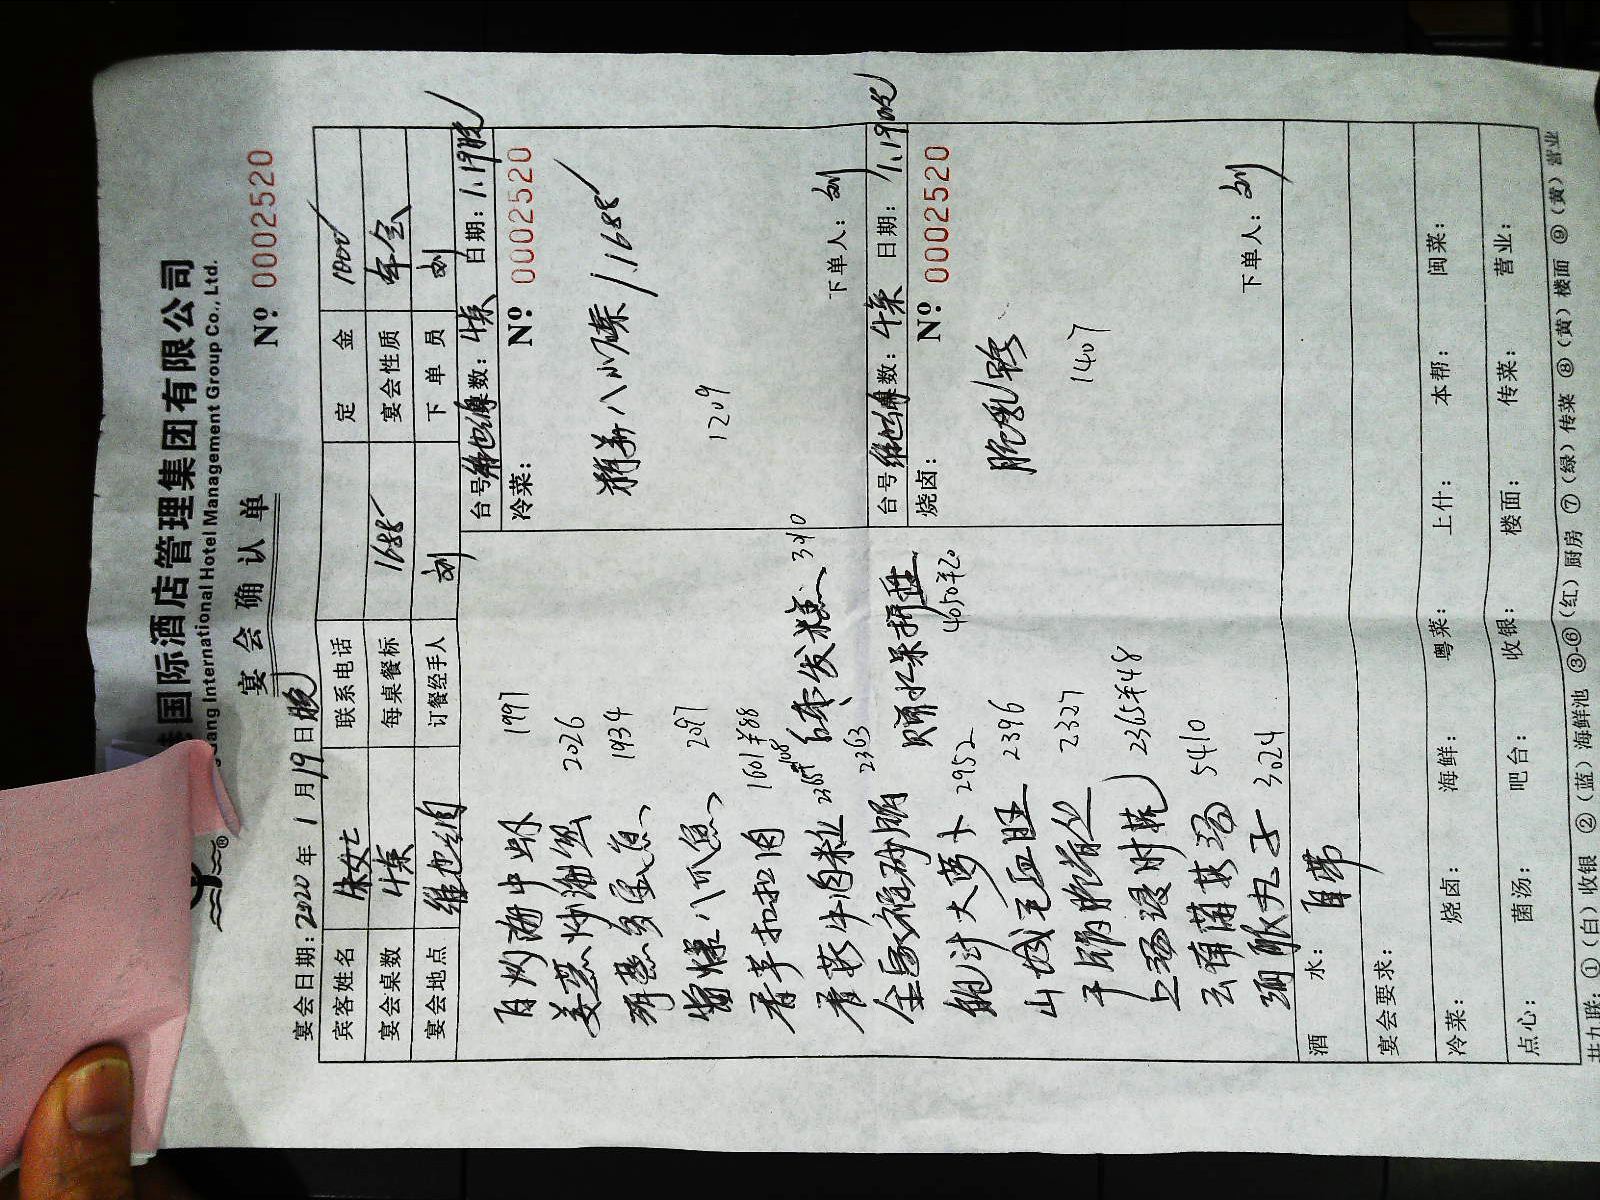 国际酒店管理集团有限公司
International Hotel Management Group Co., Ltd.
宴会确认单
Nº 0002520
宴会日期:2020年1月19日晚
宾客姓名 朱女士 联系电话 定金 1000
宴会桌数 4桌 每桌餐标 1688 宴会性质 年会
宴会地点 维也纳 订餐经手人 刘 下单员 刘
白灼海中虾 1997
姜葱炒海蟹 2026
1934
八爪鱼 2097
香芋扣扣肉 1601半88
香菇牛肉 2363
红枣发糕 340
全家福砂锅
鲍汁大萝卜 2952
4050半
山城毛血旺 2396
干锅肥肠 2327
上汤浸时蔬 2365半48
云南菌菇汤 5410
丸子 3024
台号 维也纳 桌数:4桌 日期:1.19晚
冷菜:
Nº 0002520
精美八小碟 / 1688
1209
下单人:刘
台号 维也纳 桌数:4桌 日期:1.19晚
烧卤:
Nº 0002520
脆乳鸽
1407
下单人:刘
酒水: 自带
宴会要求:
冷菜: 烧卤: 海鲜: 粤菜: 上什: 本帮: 闽菜:
点心: 菌汤: 吧台: 收银: 楼面: 传菜: 营业:
共九联:①(白)收银 ②(蓝)海鲜池 ③-⑥(红)厨房 ⑦(绿)传菜 ⑧(黄)楼面 ⑨(黄)营业